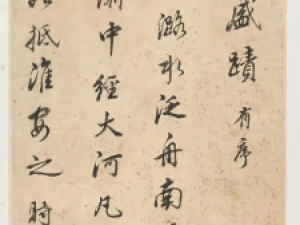 盛蹟有序
潞水泛舟南
中經大河凡
抵淮安之時